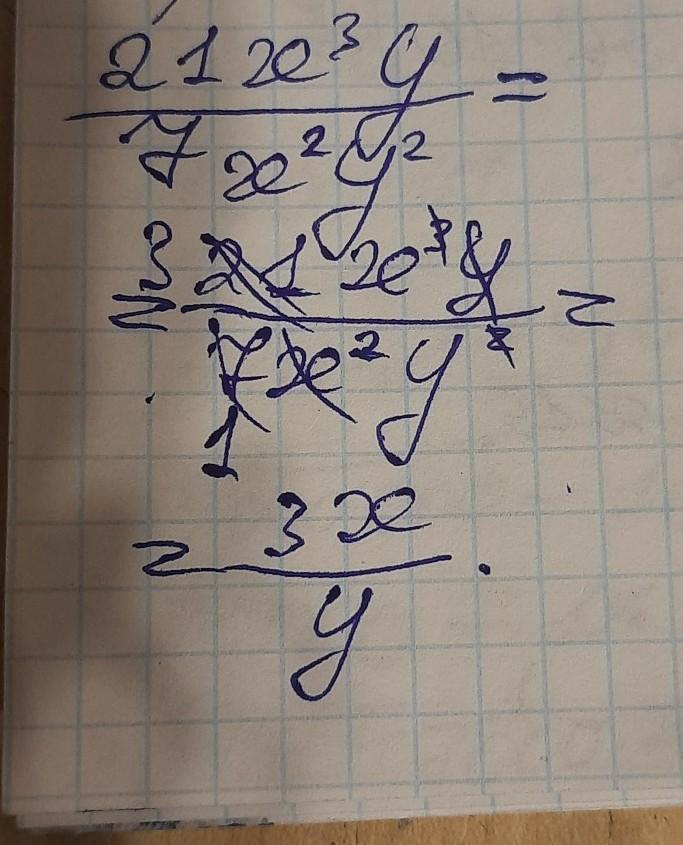 21x³y =
7x²y²
= 3 21x³y =
7x²y²
1
= 3x .
y